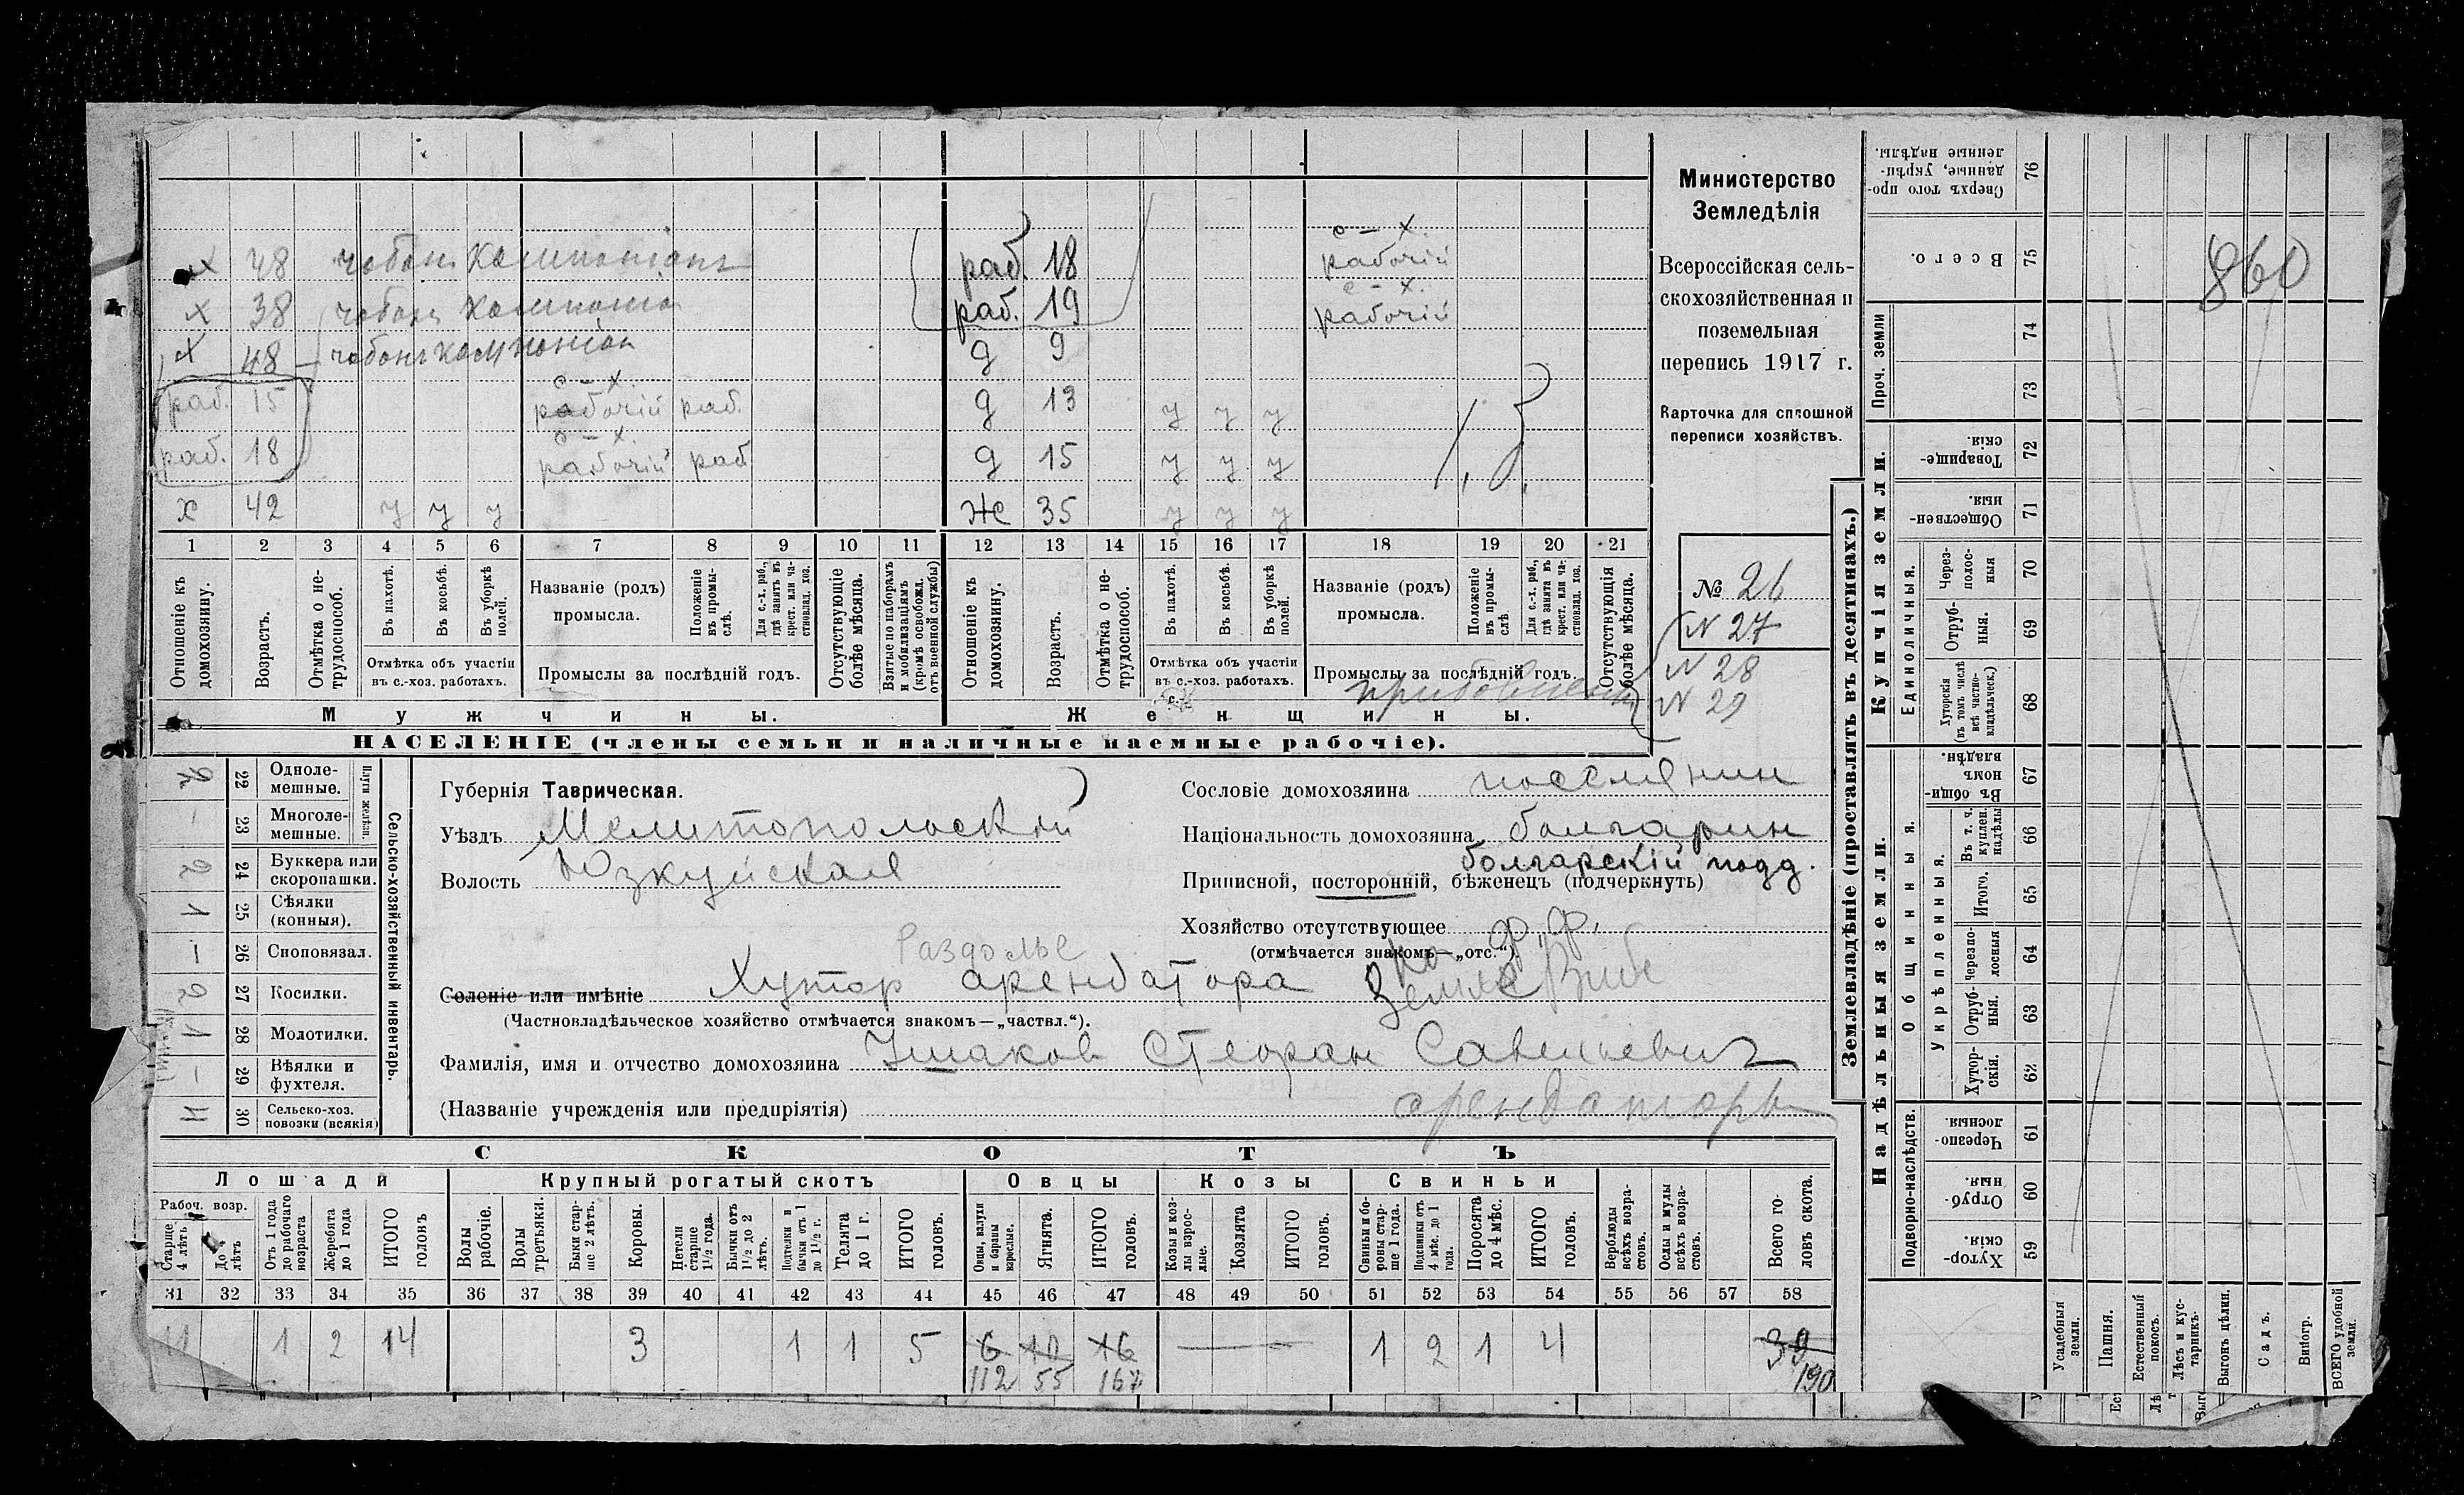 Министерство
Земледѣлія
Всероссійская сель-
скохозяйственная и
поземельная
перепись 1917 г.
Карточка для сплошной
переписи хозяйствъ.
№ 26
N 27
N 28
N 29
х 48 чобан
х 38 чобан
х 48 чобан
раб. 15 с-х. рабочій раб.
раб. 18 с-х. рабочій раб
х 42 у у у
раб. 18 с-х. рабочій
раб. 19 с-х. рабочій
д 9
д 13 у у у
д 15 у у у
Ж 35 у у у
1 2 3 4 5 6 7 8 9 10 11 12 13 14 15 16 17 18 19 20 21
Отношеніе къ домохозяину.
Возрастъ.
Отмѣтка о не-трудоспособ.
Въ пахотѣ.
Въ косьбѣ.
Въ уборкѣ полей.
Отмѣтка объ участіи
въ с.-хоз. работахъ.
Названіе (родъ)
промысла.
Положеніе въ промы-слѣ.
Для с.-х. раб., гдѣ занятъ въ крест. или ча-стновлад. хоз.
Промыслы за послѣдній годъ.
Отсутствующіе болѣе мѣсяца.
Взятые по наборамъ и мобилизаціямъ (кромѣ освобожд. отъ военной службы)
Отношеніе къ домохозяину.
Возрастъ.
Отмѣтка о не-трудоспособ.
Въ пахотѣ.
Въ косьбѣ.
Въ уборкѣ полей.
Отмѣтка объ участіи
въ с.-хоз. работахъ.
Названіе (родъ)
промысла.
Положеніе въ промы-слѣ
Для с.-х. раб., гдѣ занята въ крест. или ча-стновлад. хоз.
Промыслы за послѣдній годъ.
Отсутствующія болѣе мѣсяца.
Мужчины.
Женщины.
НАСЕЛЕНІЕ (члены семьи и наличные наемные рабочіе).
Сельско-хозяйственный инвентарь.
22 Однолемешные.
23 Многоле-мешные.
2 24 Буккера или скоропашки.
1 25 Сѣялки (конныя).
26 Сноповязал.
2 27 Косилки.
1 28 Молотилки.
29 Вѣялки и фухтеля.
30 Сельско-хоз. повозки (всякія)
Губернія Таврическая.
Уѣздъ Мелитопольскій
Волость Юзкуйская
Раздолье
Селеніе или имѣніе Хутор арендатора Земля
(Частновладѣльческое хозяйство отмѣчается знакомъ—„частвл.“).
Фамилія, имя и отчество домохозяина Ушаков Стефан Савельевич
(Названіе учрежденія или предпріятія) арендаторъ
Сословіе домохозяина поселянин
Національность домохозяина болгарин
болгарскій подд.
Приписной, посторонній, бѣженецъ (подчеркнуть)
Хозяйство отсутствующее
(отмѣчается знакомъ—„отс.“).
СКОТЪ
Лошади
Крупный рогатый скотъ
Овцы
Козы
Свиньи
Рабоч. возр.
Старше 4 лѣтъ
До 4 лѣтъ
Отъ 1 года до рабочаго возраста
Жеребята до 1 года
ИТОГО головъ
Волы рабочіе.
Волы третьяки.
Быки стар-ше 2 лѣтъ.
Коровы.
Нетели старше 1½ года.
Бычки отъ 1½ до 2 лѣтъ.
Подтелки и бычки отъ 1 до 1½ г.
Телята до 1 г.
ИТОГО головъ.
Овцы, валухи и бараны взрослые.
Ягнята.
ИТОГО головъ.
Козы и коз-лы взрос-лые.
Козлята
ИТОГО головъ.
Свиньи и бо-ровы стар-ше 1 года.
Подсвинки отъ 4 мѣс. до 1 года.
Поросята до 4 мѣс.
ИТОГО головъ.
Верблюды всѣхъ возра-стовъ.
Ослы и мулы всѣхъ возра-стовъ.
Всего го-ловъ скота.
31 32 33 34 35 36 37 38 39 40 41 42 43 44 45 46 47 48 49 50 51 52 53 54 55 56 57 58
11 1 2 14 3 1 1 5 6 10 16 — 1 2 1 4 39
112 55 167 190
Землевладѣніе (проставлять въ десятинахъ.)
Купчія земли.
Надѣльныя земли.
Сверхъ того про-данные, укрѣп-ленные надѣлы. 76
Всего. 75 860
Проч. земли 74 73
Товарище-скія. 72
Обществен-ныя. 71
Единоличныя.
Через-полос-ныя 70
Отруб-ныя. 69
Хуторскія (въ томъ числѣ всѣ частно-владѣльческ.) 68
Въ общи-номъ владѣн. 67
Общинныя.
Укрѣпленныя.
Въ т. ч. куплен. надѣлы 66
Итого. 65
Черезпо-лосныя 64
Отруб-ныя. 63
Хутор-скія. 62
Подворно-наслѣдств.
Черезпо-лосныя 61
Отруб-ныя. 60
Хутор-скія. 59
Усадебныя земли.
Пашня.
Естественный покосъ.
Лѣсъ и кус-тарникъ.
Выгонъ цѣлин.
Садъ.
Виногр.
ВСЕГО удобной земли.